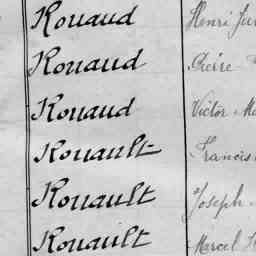 Rouaud Henri
Rouaud Pierre
Rouaud Victor
Rouault Francis
Rouault Joseph
Rouault Marcel